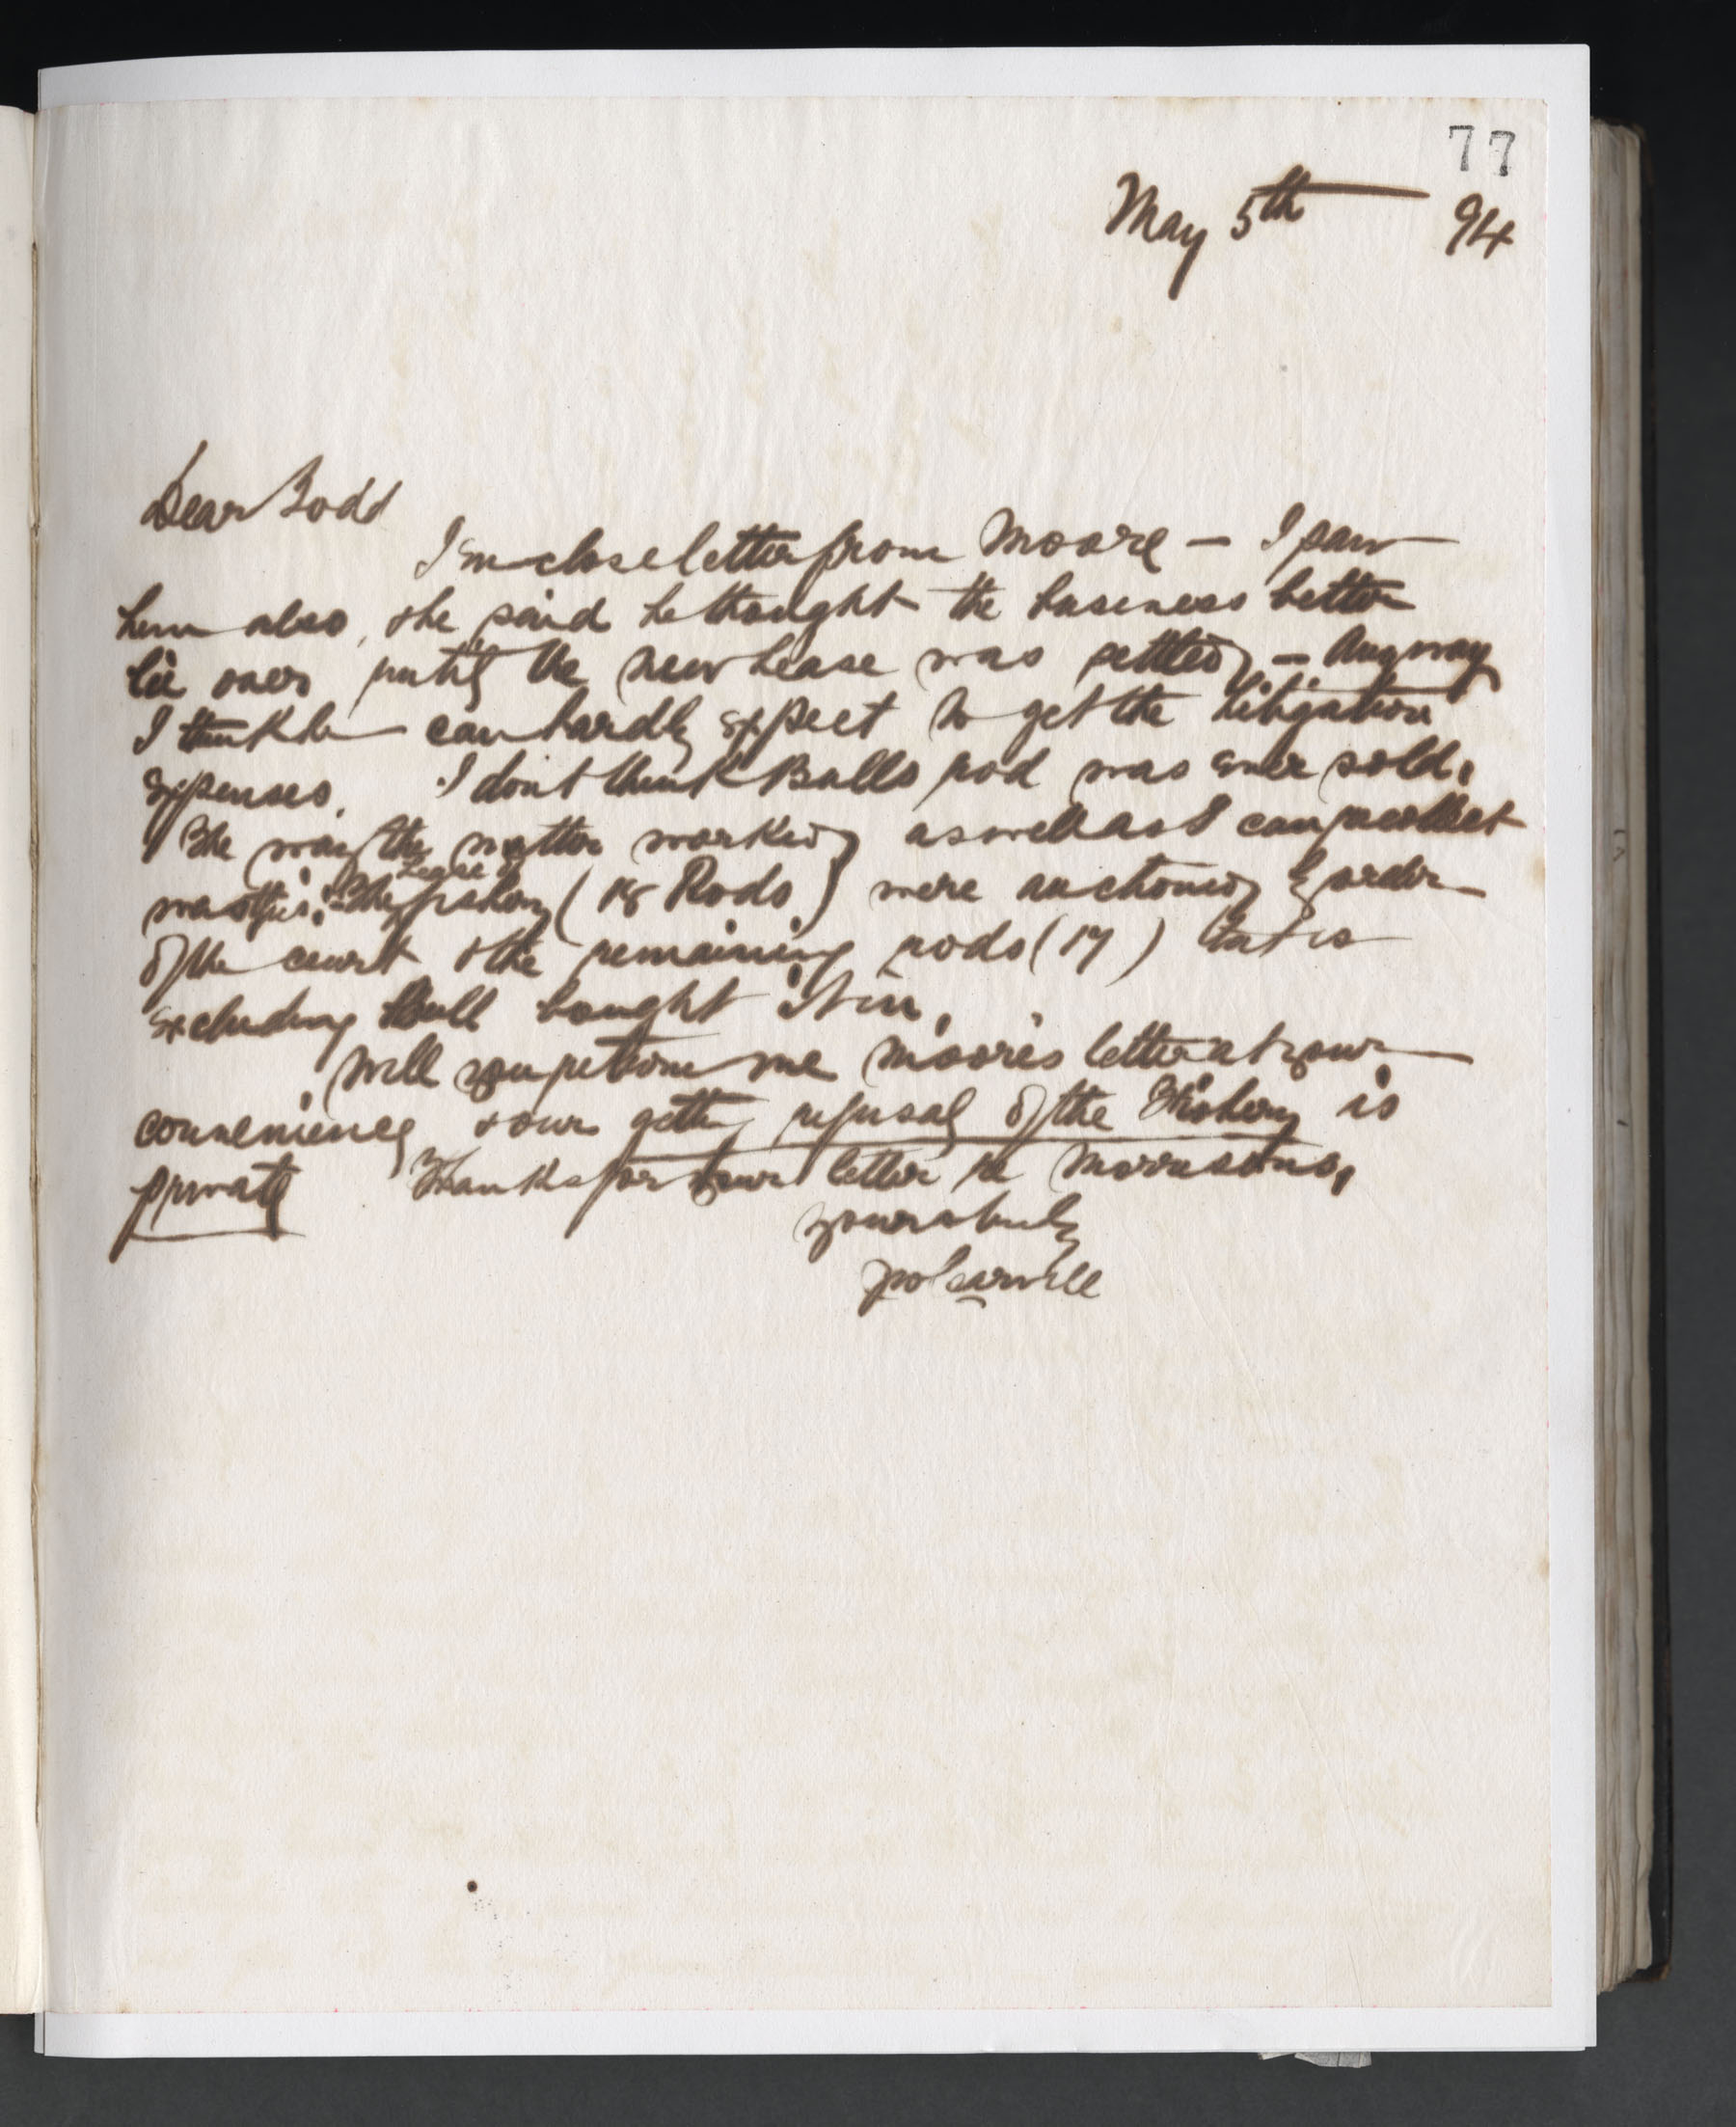 77
May 5th 94
Dear Todd
I enclose letter from Moore — I saw
him also, & he said he thought the business better
lie over until the new lease was settled — Anyway
I think he can hardly expect to get the litigation
expenses. I don't think Balls rod was ever sold.
The way the matter worked as well as I can recollect
was this: The Lease of fishery (18 Rods) were auctioned by order
of the court & the remaining rods (17) that is
excluding Ball bought it in.
Will you return me Moore's letter at your
convenience, & our getting refusal of the Fishery is
private Thanks for your letter re Morrisons.
yours truly